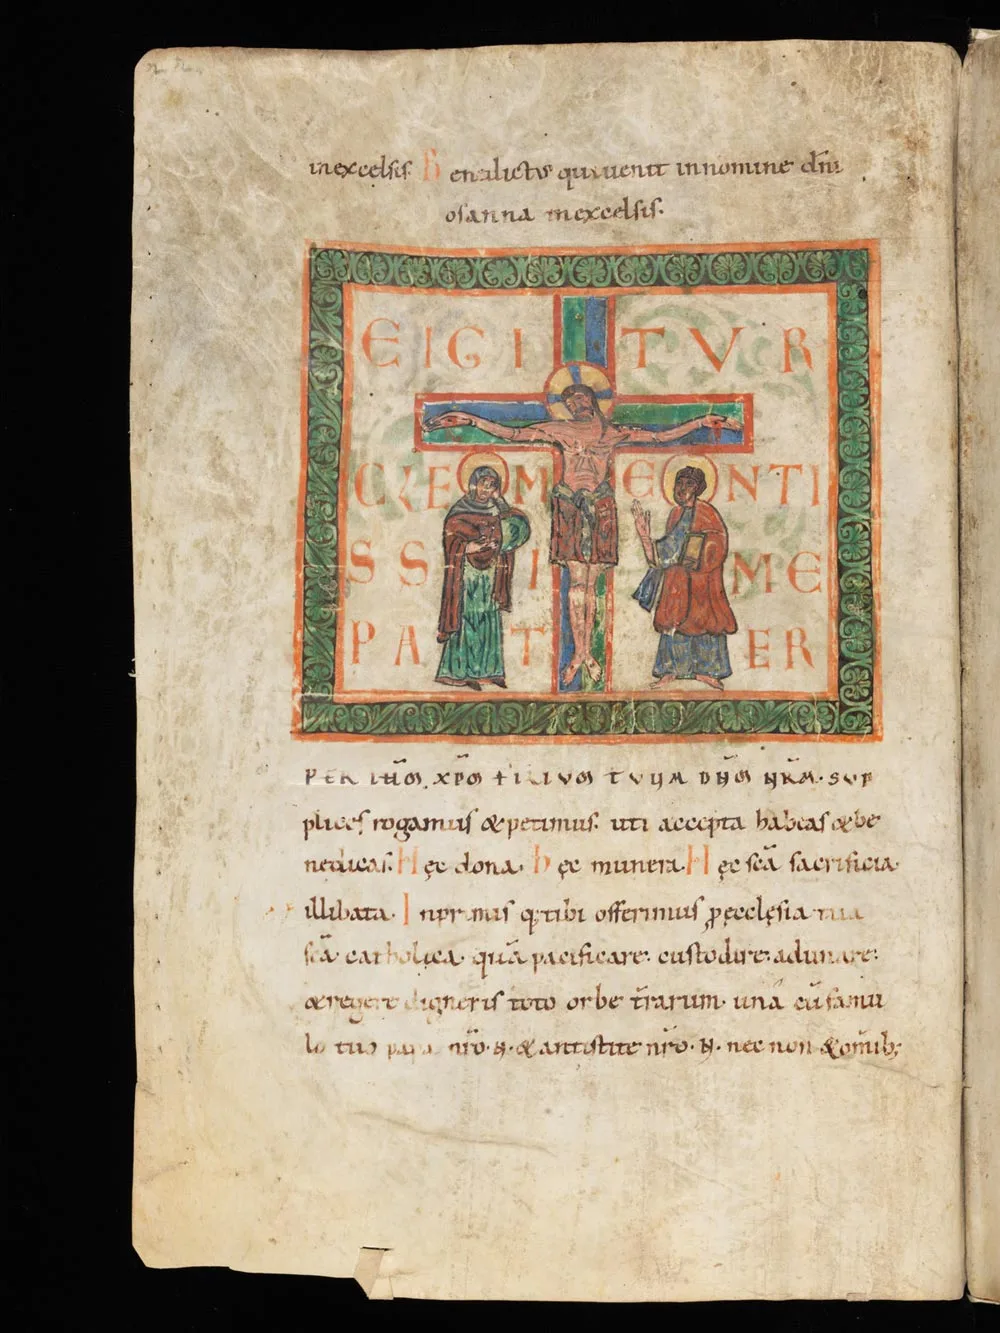 inexcelsis. Benedictus quiuenit innomine dñi
osanna inexcelsis.
E IGI TVR
CLEM ENTI
SSI ME
PAT ER
PER IHM XPM FILIVM TVVM DNM NRM. SVP
plices rogamus &petimus. uti accepta habeas &be
nedicas. Hęc dona. hęc munera. Hęc scã sacrificia
illibata. Inprimis q̃ tibi offerimus p̱ ecclęsia tua
scã catholica. quã pacificare. custodire. adunare.
&regere digneris toto orbe tr̃arum. una cũ famu
lo tuo papa nr̃o. N. & antistite nr̃o. N. nec non & omĩb;